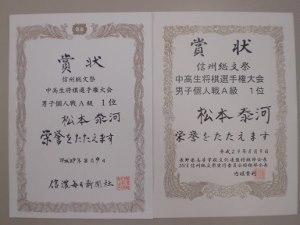 賞状
信州総文祭
中高生将棋選手権大会
男子個人戦A級 1位
松本泰河
栄誉をたたえます
平成29年8月9日
信濃毎日新聞社
賞状
信州総文祭
中高生将棋選手権大会
男子個人戦A級 1位
松本泰河
栄誉をたたえます
平成29年8月9日